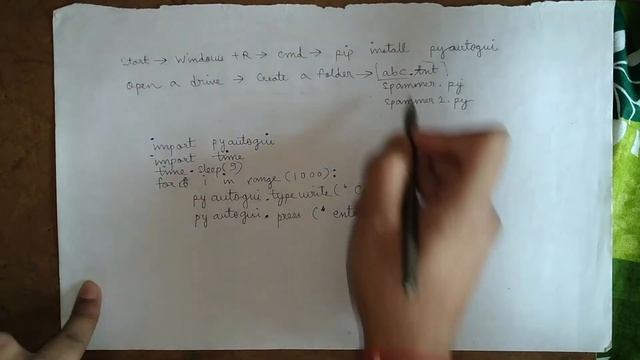 Start → Windows + R → cmd → pip install pyautogui
Open a drive → Create a folder → abc.txt
spammer.py
spammer 2.py
import pyautogui
import time
time.sleep(5)
for i in range (1000):
pyautogui.typewrite("
pyautogui.press ("ente